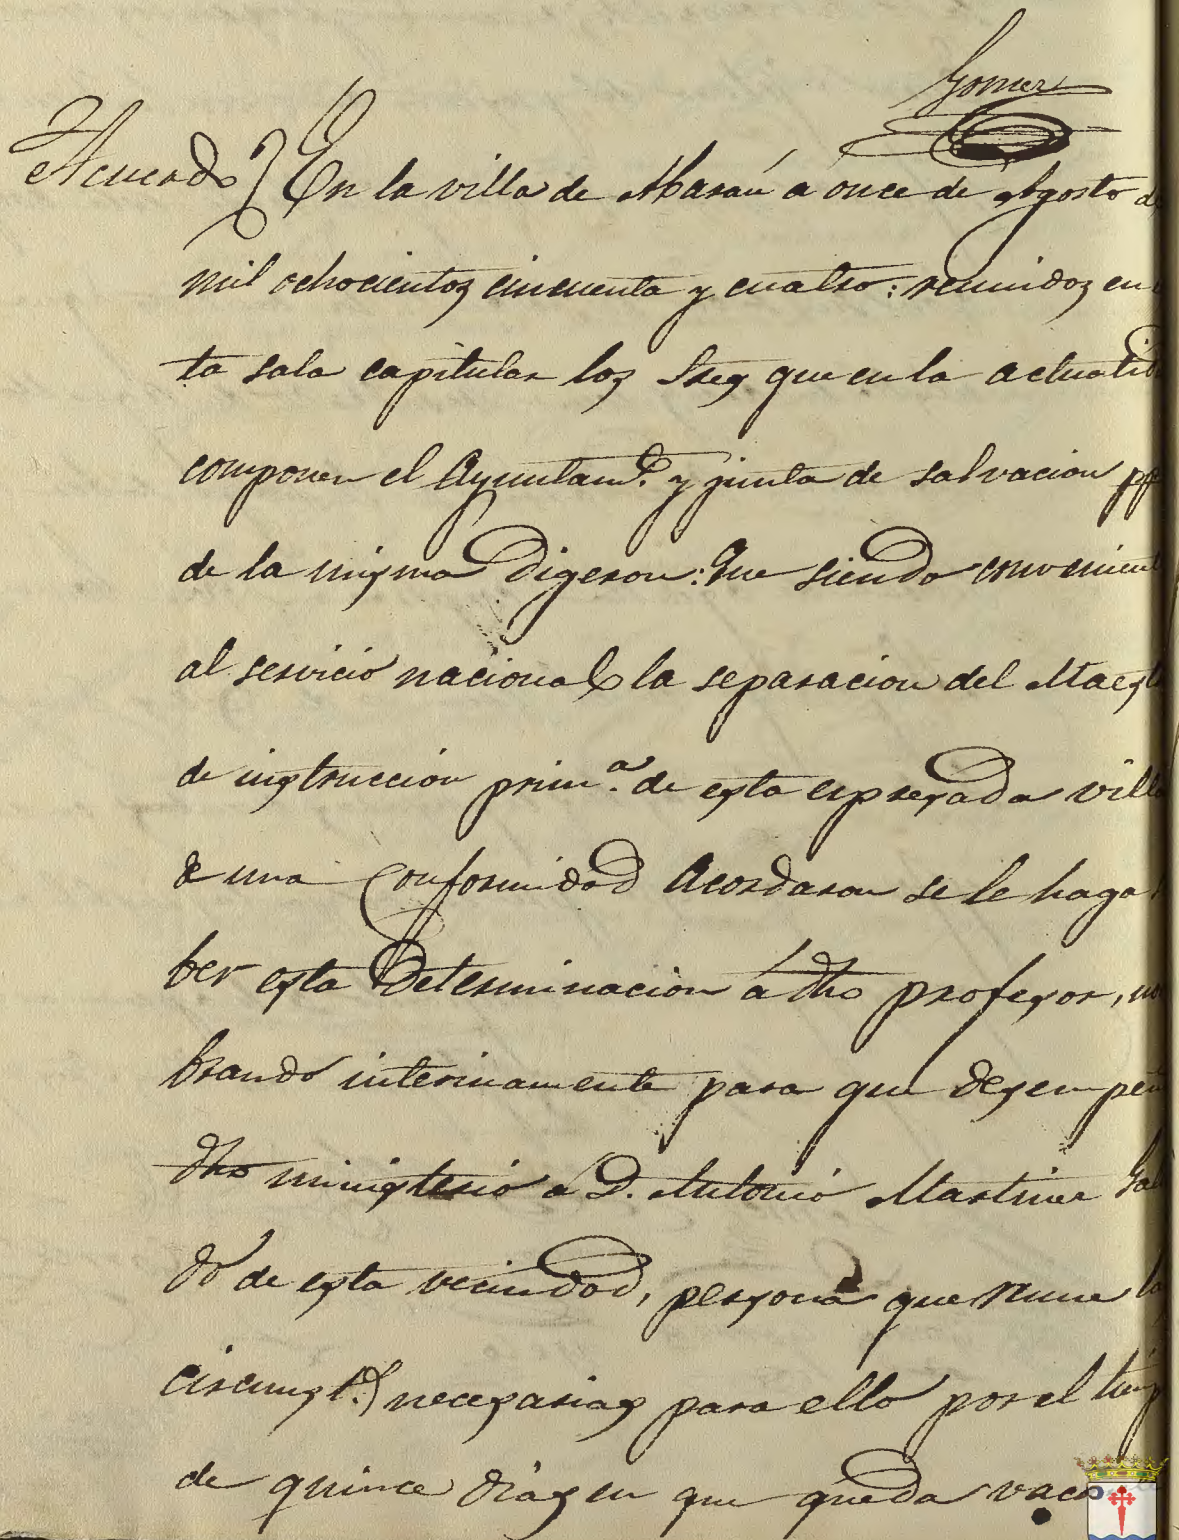 Gomez
Acuerdo En la villa de Abarán á once de Agosto de
mil ochocientos cincuenta y cuatro: reunidos en
ta sala capitular los Sres que en la actualid
componen el Ayuntamto. y junta de salvacion
de la misma Digeron: Que siendo convenient
al servicio nacional la separacion del Maest
de instruccion prima. de esta espresada villa
de una Conformidad Acordaron se le haga
ber esta Determinacion á dho profesor, no
brando interinamente para que desempeñ
dho ministerio a D. Antonio Martinez
do de esta vecindad, persona que reune
circunsts. necesarias para ello por el tiemp
de quince dias en que queda vaca